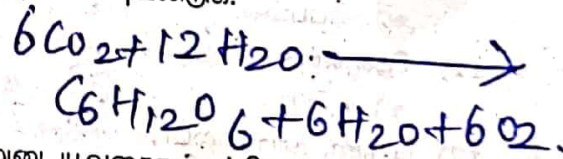 6CO2+12H2O.⟶
C6H12O6+6H2O+6O2.